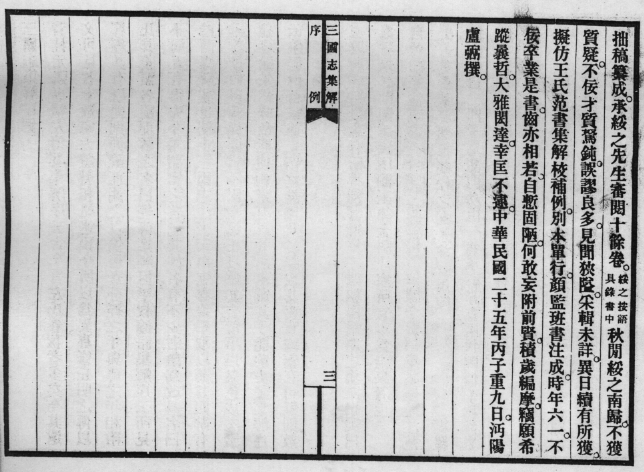 拙稿纂成。承綬之先生審閱十餘卷。綬之按語具錄書中秋閒綬之南歸。不獲
質疑。不佞才質駑鈍。誤謬良多。見聞狹隘。采輯未詳。異日續有所獲。
擬仿王氏范書集解校補例。別本單行。顏監班書注成。時年六一。不
佞卒業是書。齒亦相若。自慙固陋。何敢妄附前賢。積歲編摩。竊願希
蹤曩哲。大雅閎達。幸匡不逮。中華民國二十五年丙子重九日。沔陽
盧弼撰。
三國志集解
序例
三